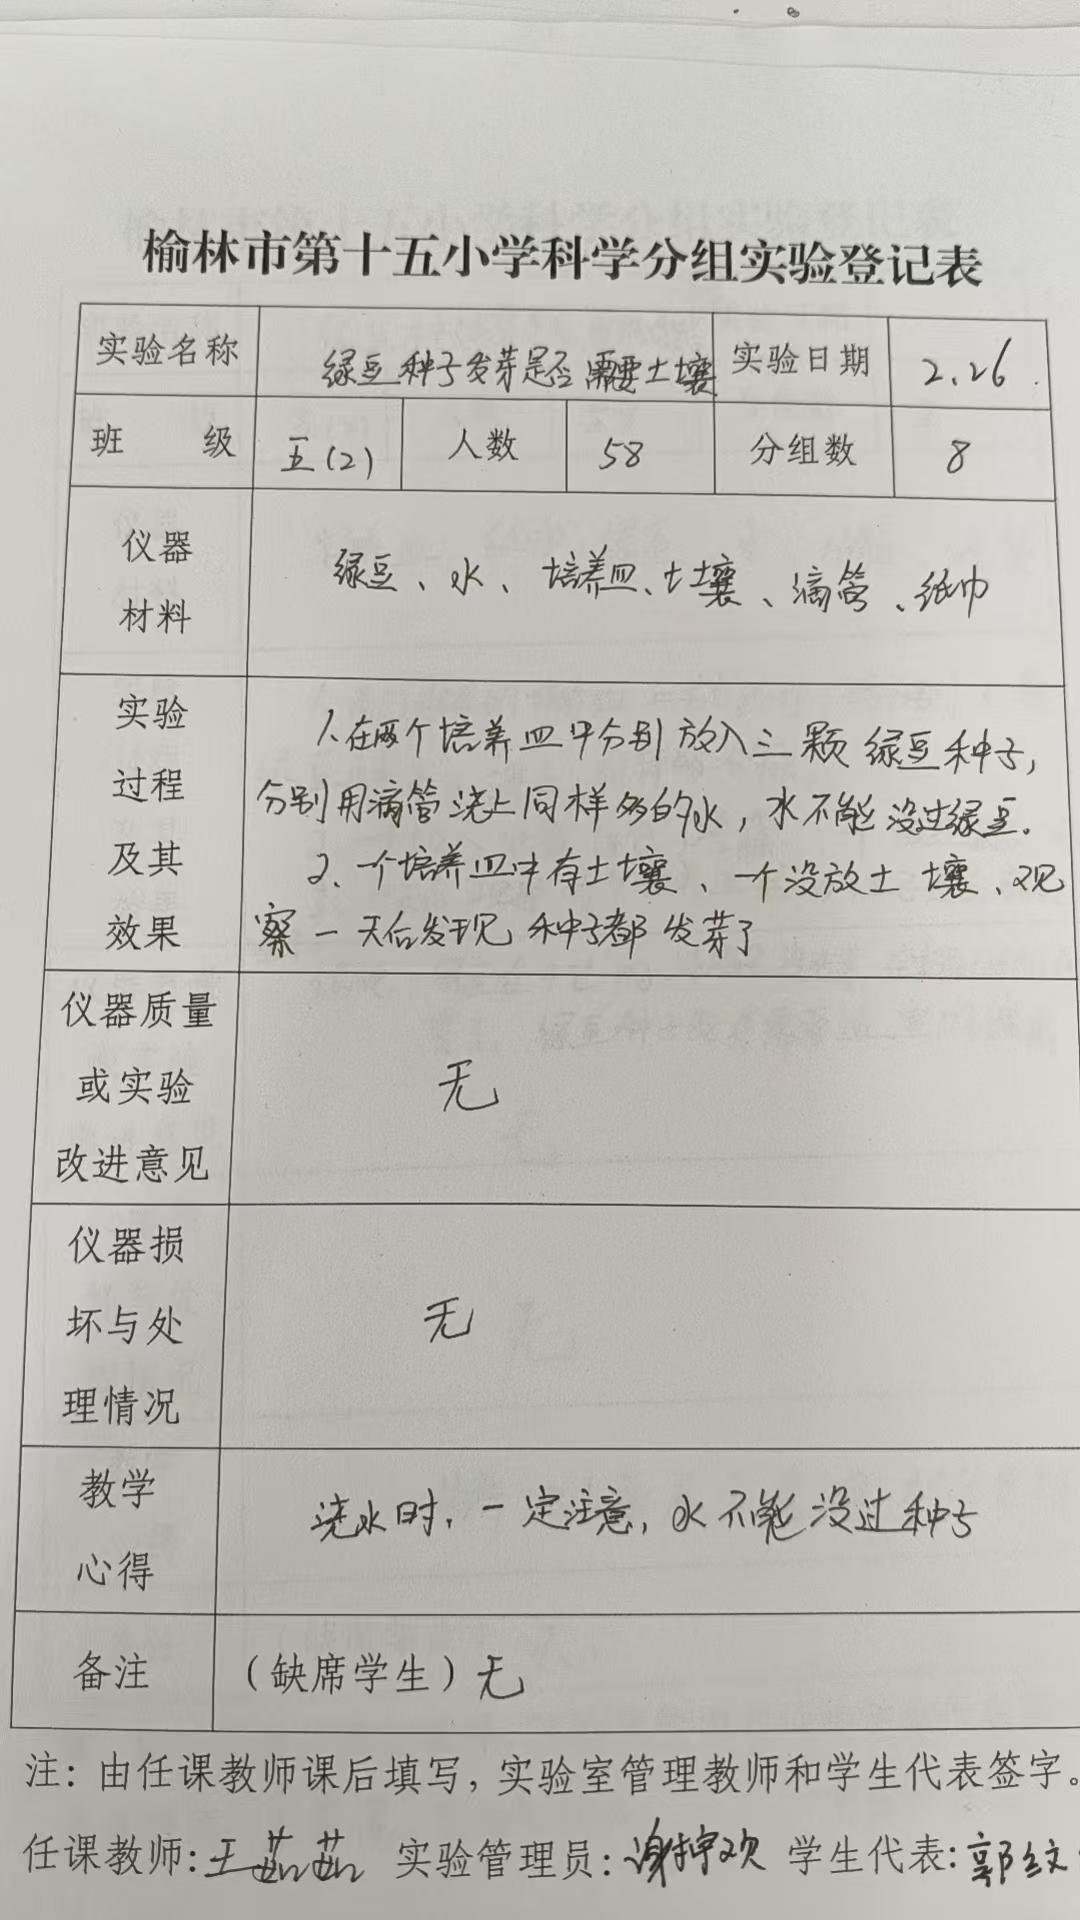 榆林市第十五小学科学分组实验登记表
实验名称 绿豆种子发芽是否需要土壤 实验日期 2.26
班 级 五(2) 人数 58 分组数 8
仪器
材料
绿豆、水、培养皿、土壤、滴管、纸巾
实验
过程
及其
效果
1.在两个培养皿中分别放入三颗绿豆种子,
分别用滴管浇上同样多的水,水不能没过绿豆.
2、一个培养皿中有土壤、一个没放土壤、观
察一天后发现种子都发芽了
仪器质量
或实验
改进意见
无
仪器损
坏与处
理情况
无
教学
心得
浇水时,一定注意,水不能没过种子
备注 (缺席学生)无
注:由任课教师课后填写,实验室管理教师和学生代表签字。
任课教师:王茹茹 实验管理员:谢 欢 学生代表:郭纹